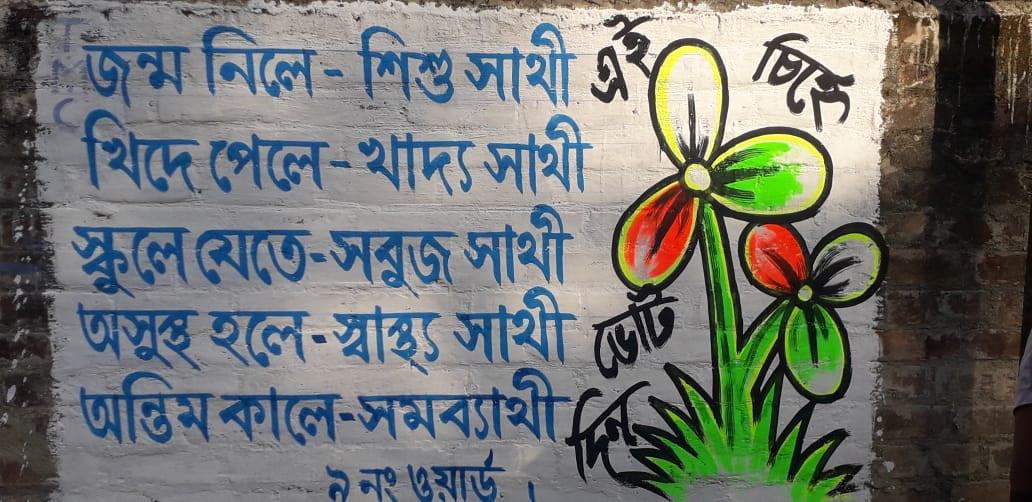 জন্ম নিলে - শিশু সাথী
খিদে পেলে - খাদ্য সাথী
স্কুলে যেতে - সবুজ সাথী
অসুস্থ হলে - স্বাস্থ্য সাথী
অন্তিম কালে - সমব্যাথী
৯ নং ওয়ার্ড ।
এই চিহ্নে
ভোট
দিন
TMC